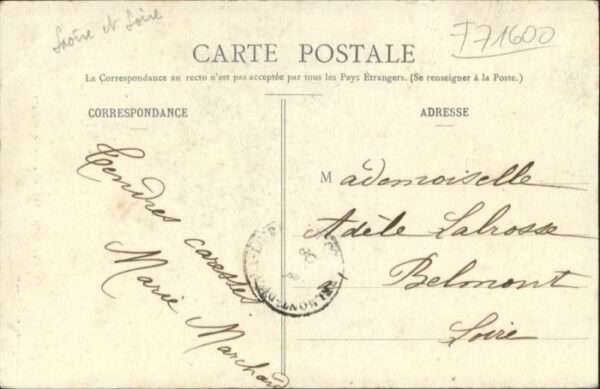 Saône et Loire
F71600
CARTE POSTALE
La Correspondance au recto n'est pas acceptée par tous les Pays Étrangers. (Se renseigner à la Poste.)
CORRESPONDANCE
ADRESSE
Tendres caresses
Marie Marchand
Mademoiselle
Adèle Labrosse
Belmont
Loire